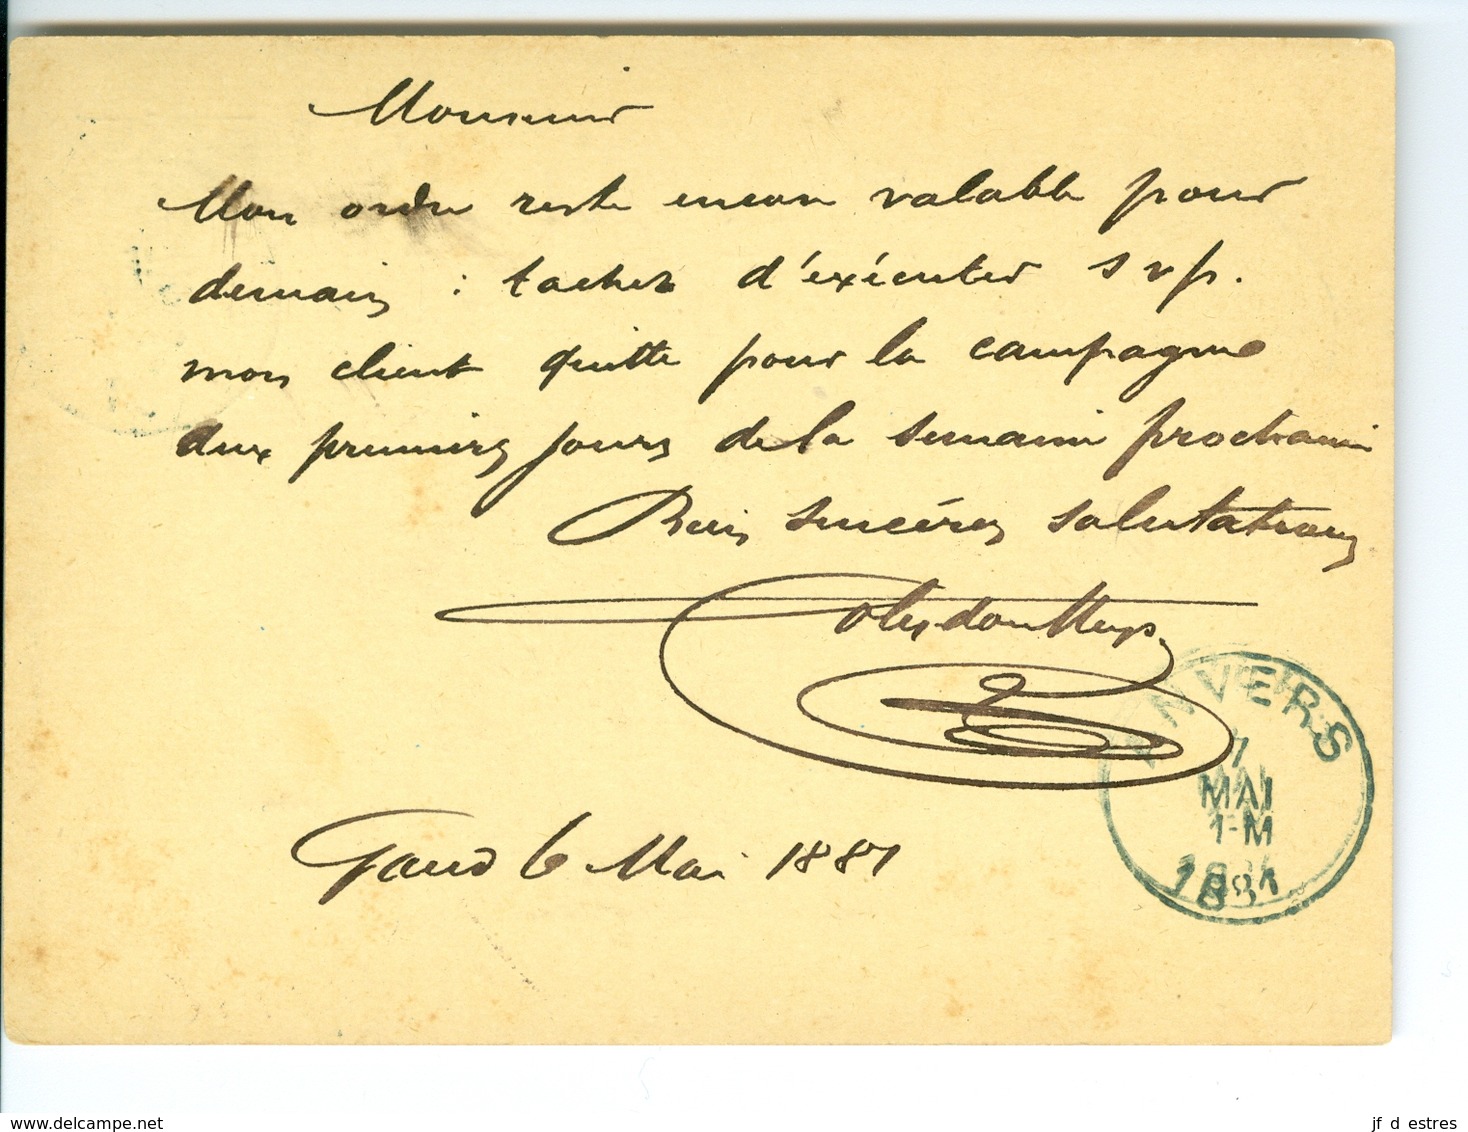 Monsieur
Mon ordre reste encore valable pour
demain : tachez d'exécuter s v p.
mon client quitte pour la campagne
aux premiers jours de la semaine prochaine
Mes sincères salutations
Gand 6 Mai 1881
ANVERS
7
MAI
1-M
1881
www.delcampe.net
jf d estres